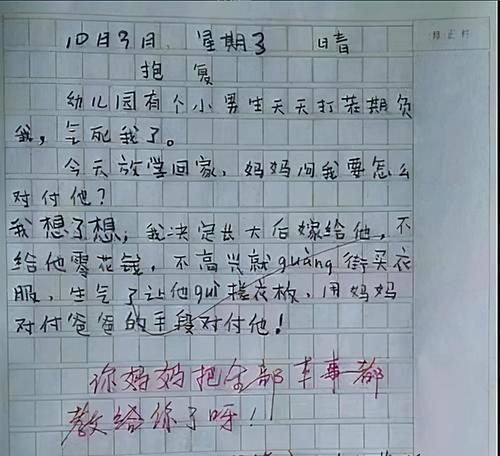 10月9日、星期3 晴
抱复
幼儿园有个小男生天天打若期负
我,气死我了。
今天放学回家,妈妈问我要怎么
对付他?
我想了想,我决定长大后嫁给他,不
给他零花钱,不高兴就guàng街买衣
服,生气了让他guì搓衣板,用妈妈
对付爸爸的手段对付他!
你妈妈把全部本事都
教给你了呀!